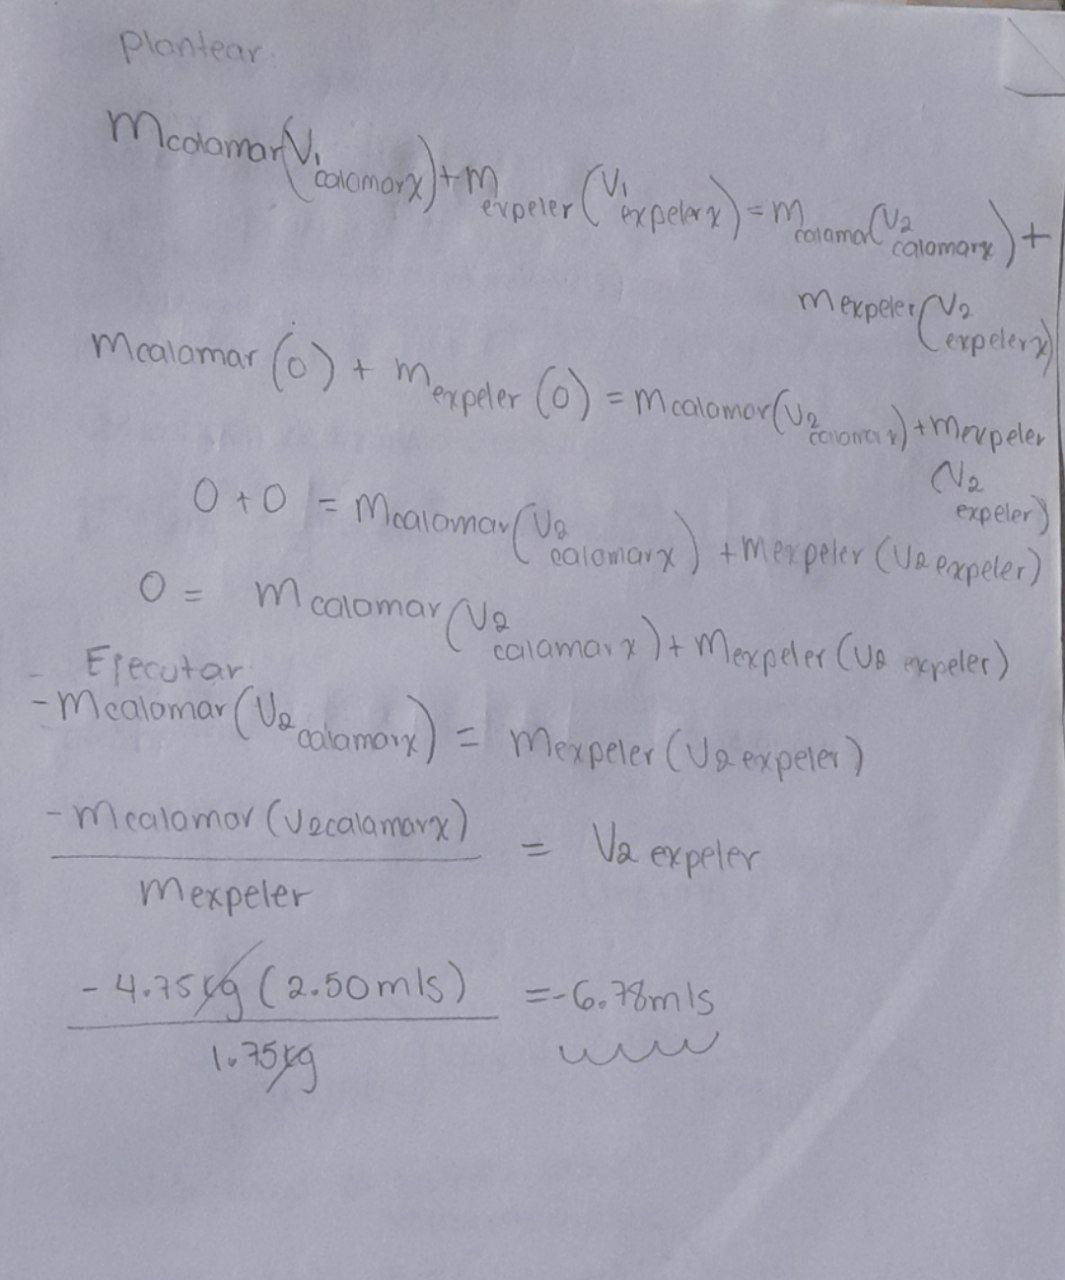 Plantear.
Mcalamar(V1 calamarx) + m expeler (V1 expelerx) = m calamar (V2 calamarx) +
m expeler (V2 expelerx)
Mcalamar (0) + m expeler (0) = m calamar (V2 calamarx) + m expeler
(V2 expeler)
0 + 0 = Mcalamar (V2 calamarx) + m expeler (V2 expeler)
0 = m calamar (V2 calamarx) + m expeler (V2 expeler)
Ejecutar.
- Mcalamar (V2 calamarx) = m expeler (V2 expeler)
- m calamar (V2 calamarx) / m expeler = V2 expeler
- 4.75 kg (2.50 m/s) / 1.75 kg = - 6.78 m/s